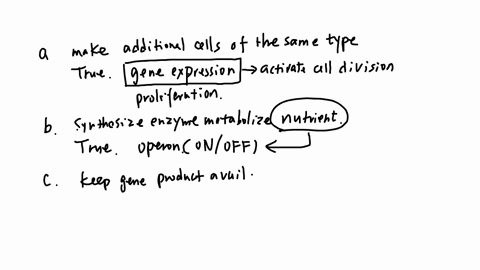 a make additional cells of the same type
True. gene expression → activate cell division
proliferation.
b. synthesize enzyme metabolize nutrient.
True. operon (ON/OFF) ←
c. keep gene product avail.